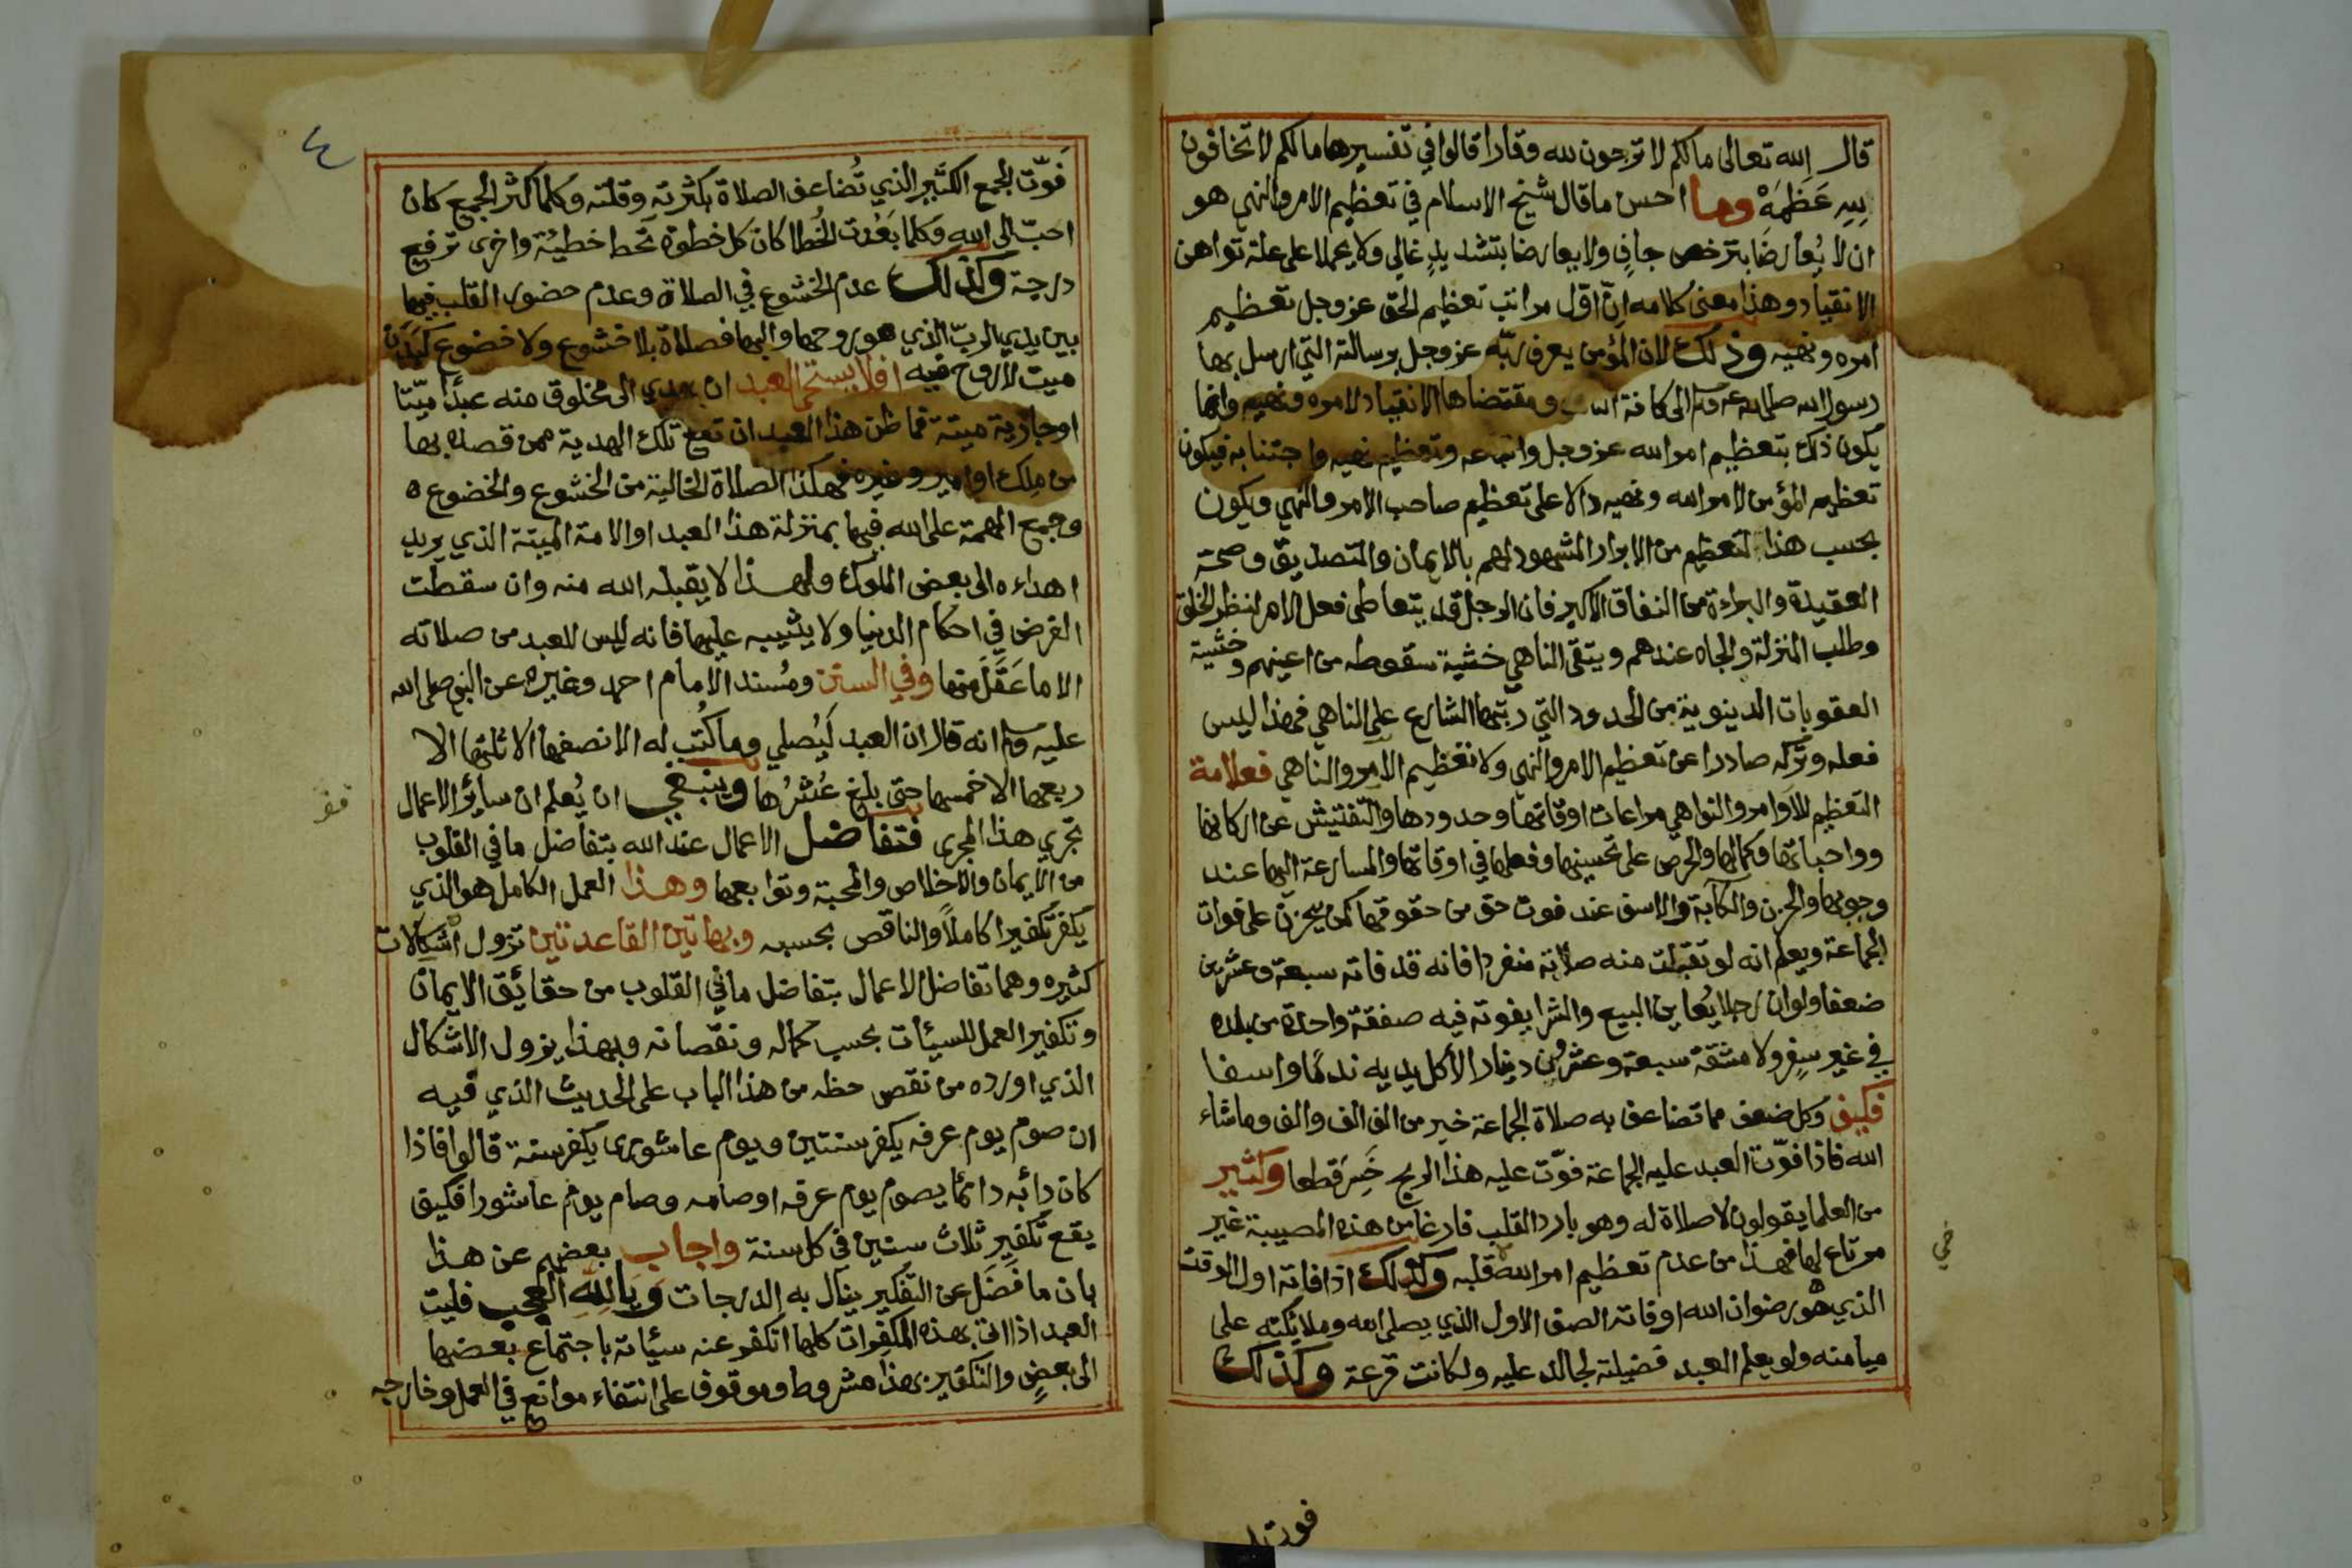 قال الله تعالى مالكم لا ترجون لله وقارا قالوا في تفسيرها مالكم لا تخافون
لله عَظَمَةً وما احسن ما قال شيخ الاسلام في تعظيم الامر والنهي هو
ان لا يُعارضَا بترخص جافٍ ولا يعارضا بتشديدٍ غالي ولا يحملا على علة تواهن
الانقياد وهذا معنى كلامه انّ اوّل مراتب تعظيم الحق عز وجل تعظيم
امره ونهيه وذلك لان المؤمن يعرف ربّه عز وجل برسالته التي ارسل بها
رسول الله صلى الله عليه وسلم الى كافة الناس ومقتضاها الانقياد لامره ونهيه وانما
يكون ذلك بتعظيم امر الله عز وجل واتباعه وتعظيم نهيه واجتنابه فيكون
تعظيم المؤمن لامر الله ونهيه دالا على تعظيم صاحب الامر والنهي ويكون
بحسب هذا التعظيم من الابرار المشهود لهم بالايمان والتصديق وصحة
العقيدة والبراءة من النفاق الاكبر فان الرجل قد يتعاطى فعل الامر لنظر الخلق
وطلب المنزلة والجاه عندهم ويتقى الناهي خشية سقوطه من اعينهم وخشية
العقوبات الدينوية من الحدود التي رتبها الشارع على الناهي فهذا ليس
فعله وتركه صادرا عن تعظيم الامر والنهي ولا تعظيم الامر والناهي فعلامة
التعظيم للاوامر والنواهي مراعات اوقاتها وحدودها والتفتيش عن اركانها
وواجباتها وكمالها والحرص على تحسينها وفعلها في اوقاتها والمسارعة اليها عند
وجوبها والحزن والكآبة والاسف عند فوت حق من حقوقها كمن يحزن على فوات
الجماعة ويعلم انه لو تقبلت منه صلاته منفردا فانه قد فاته سبعة وعشرين
ضعفا ولو ان رجلا يُعاين البيع والشرا يفوته فيه صفقة واحدة من بلده
في غير سفر ولا مشقة سبعة وعشرون دينارا لأكل يديه ندمًا واسفا
فكيف وكل ضعف مما تضاعف به صلاة الجماعة خير من الف الف والف وما شاء
الله فاذا فوّت العبد عليه الجماعة فوّت عليه هذا الربح خَسِرَ قطعا وكثير
من العلما يقولون لا صلاة له وهو بارد القلب فارغا من هذه المصيبة غير
مرتاع لها فهذا من عدم تعظيم امر الله قلبه وكذلك اذا فاته اول الوقت
الذي هو رضوان الله او فاته الصف الاول الذي يصلي الله وملايكته على
ميامنه ولو يعلم العبد فضيلته لجالد عليه ولكانت قرعة وكذلك
فوت
في
٤
فَوّت الجمع الكثير الذي تُضاعف الصلاة بكثرته وقلته وكلما كثر الجمع كان
احبّ الى الله وكلما بَعُدت الخُطا كان كل خطوة تحط خطيئة واخرى ترفع
درجة وكذلك عدم الخشوع في الصلاة وعدم حضور القلب فيها
بين يدي الربّ الذي هو روحها والبها فصلاة بلا خشوع ولا خضوع كبَدَن
ميت لا روح فيه افلا يستحي العبد ان يهدي الى مخلوق منه عبدًا ميّتا
او جارية ميتة فما ظن هذا العبد ان تقع تلك الهدية ممن قصده بها
من ملك او امير وغيره فهكذا الصلاة الخالية من الخشوع والخضوع ه
وجمع الهمة على الله فيها بمنزلة هذا العبد او الامة الميتة الذي يريد
اهداءه الى بعض الملوك ولهذا لا يقبله الله منه وان سقطت
الفرض في احكام الدنيا ولا يثيبه عليها فانه ليس للعبد من صلاته
الا ما عَقَلَ منها وفي السنن ومُسند الامام احمد وغيره عن النبي صلى الله
عليه وسلم انه قال ان العبد لَيُصلي وما كُتب له الا نصفها الا ثلثها الا
ربعها الا خمسها حتى بلغ عُشرُها وينبغي ان يُعلم ان سائر الاعمال
تجري هذا المجرى فتفاضل الاعمال عند الله بتفاضل ما في القلوب
من الايمان والاخلاص والمحبة وتوابعها وهذا العمل الكامل هو الذي
يكفر تكفيرا كاملًا والناقص بحسبه وبهاتين القاعدتين تزول اشكالات
كثيره وهما تفاضل الاعمال بتفاضل ما في القلوب من حقائق الايمان
وتكفير العمل للسيئات بحسب كماله ونقصانه وبهذا يزول الاشكال
الذي اورده من نقص حظه من هذا الباب على الحديث الذي فيه
ان صوم يوم عرفه يكفر سنتين ويوم عاشورى يكفر سنة قالوا فاذا
كان دائبه دائما يصوم يوم عرفه او صامه وصام يوم عاشورا فكيف
يقع تكفير ثلاث سنين في كل سنة واجاب بعضهم عن هذا
بان ما فَضَل عن التفكير ينال به الدرجات وبالله العجب فليت
العبد اذا اتى بهذه المكفرات كلها اتكفر عنه سيئاته باجتماع بعضها
الى بعضٍ والتكفير بهذا مشروط وموقوف على انتفاء موانع في العمل وخارجه